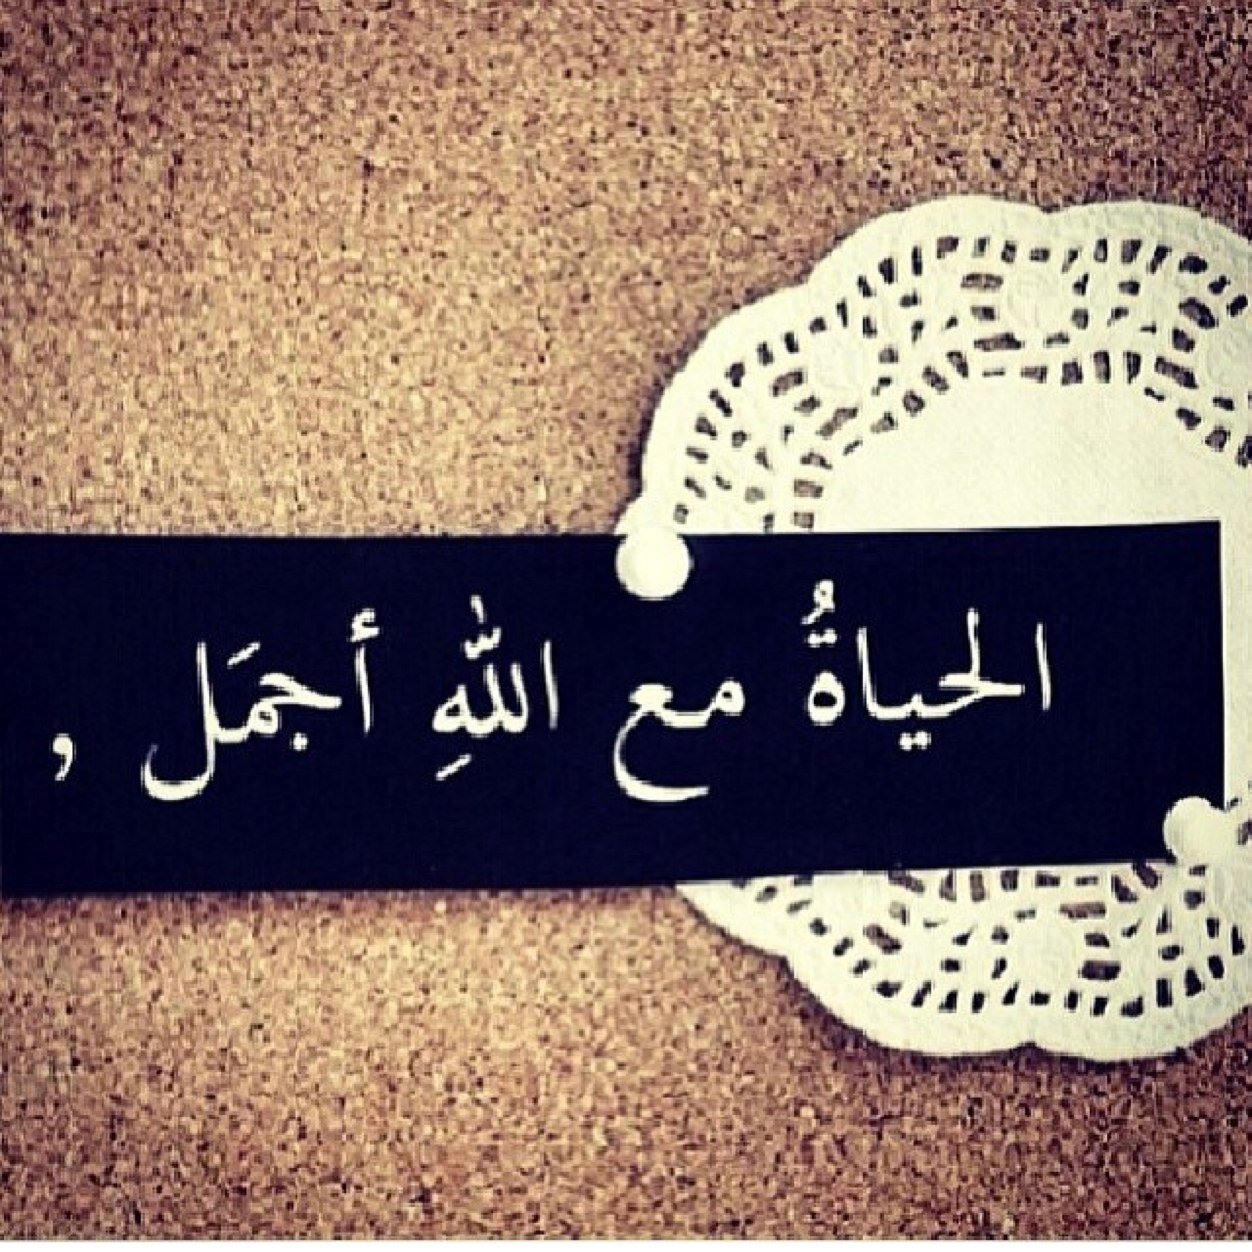 الحياةُ مع اللّٰهِ أجمَل ,